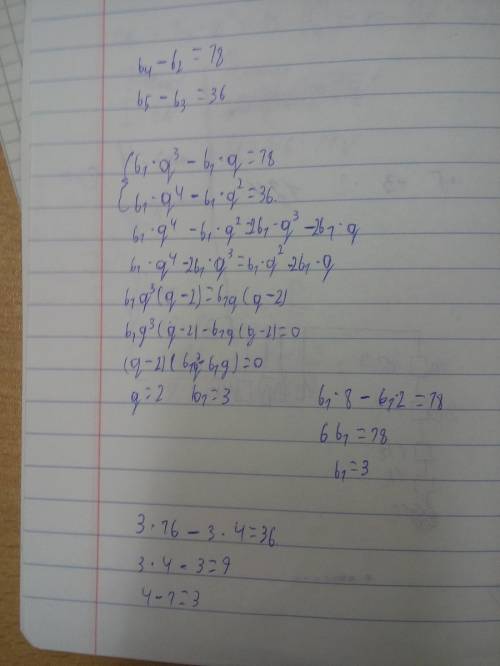 b₄ - b₂ = 18
b₅ - b₃ = 36
{ b₁·q³ - b₁·q = 18
b₁·q⁴ - b₁·q² = 36
b₁·q⁴ - b₁·q² = 2b₁·q³ - 2b₁·q
b₁·q⁴ - 2b₁·q³ = b₁·q² - 2b₁·q
b₁q³(q-2) = b₁q(q-2)
b₁q³(q-2) - b₁q(q-2) = 0
(q-2)(b₁q³ - b₁q) = 0
q = 2 b₁ = 3
b₁·8 - b₁·2 = 18
6b₁ = 18
b₁ = 3
3·16 - 3·4 = 36
3·4 - 3 = 9
4 - 1 = 3